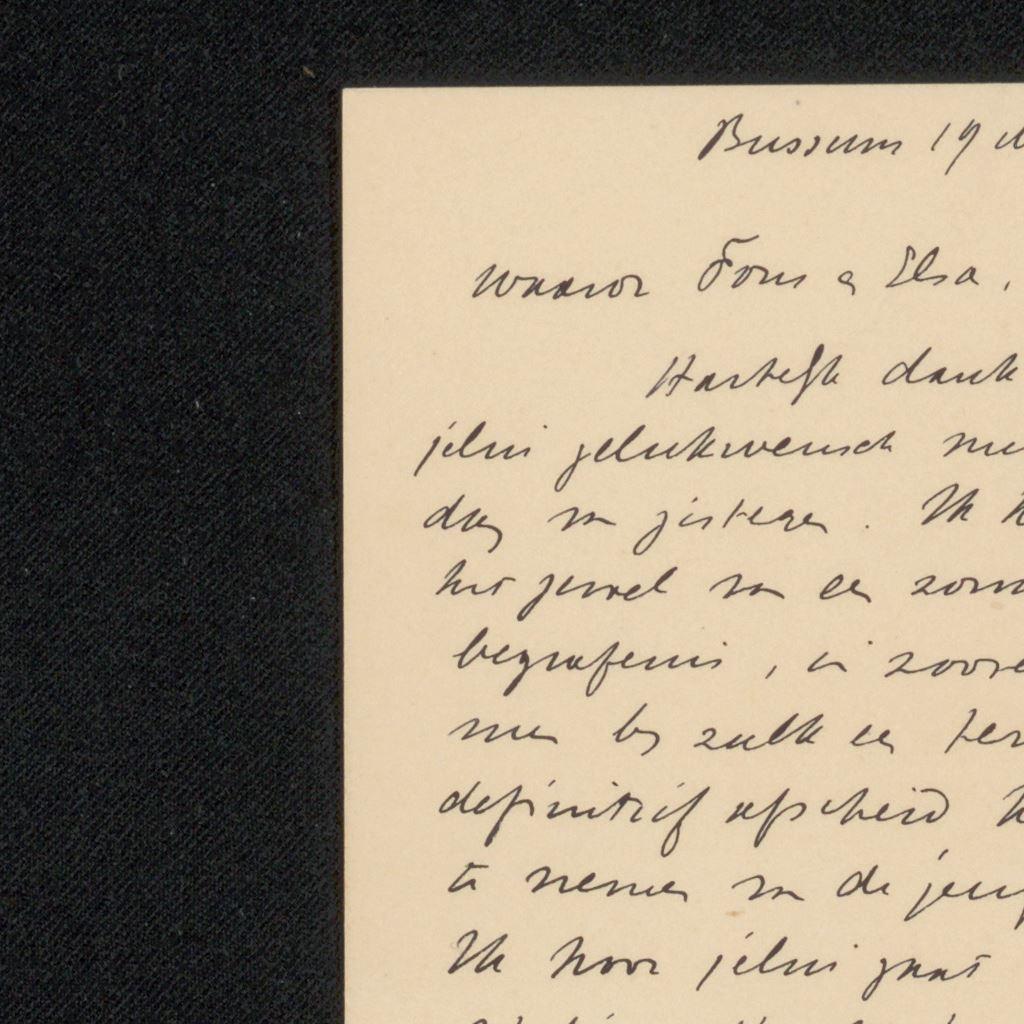 Bussum 19
Waarde Fons en Elsa.
Hartelijk dank
jelui gelukwensch
dag van gisteren. Ik
het gevoel van een
begrafenis, in zoover
men bij zulk een
definitief afscheid
te nemen van de jeug
Ik hoor jelui gaat